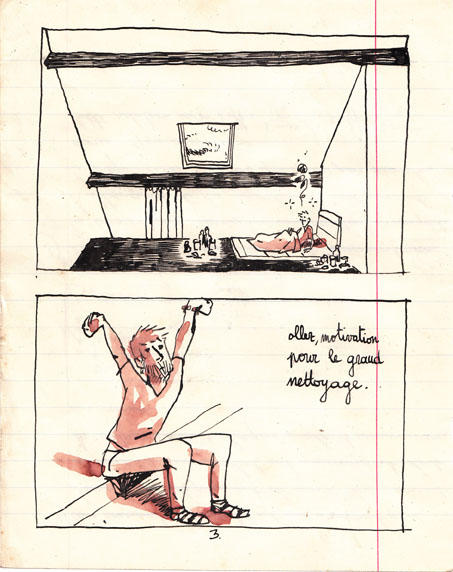 allez, motivation
pour le grand
nettoyage.
3.